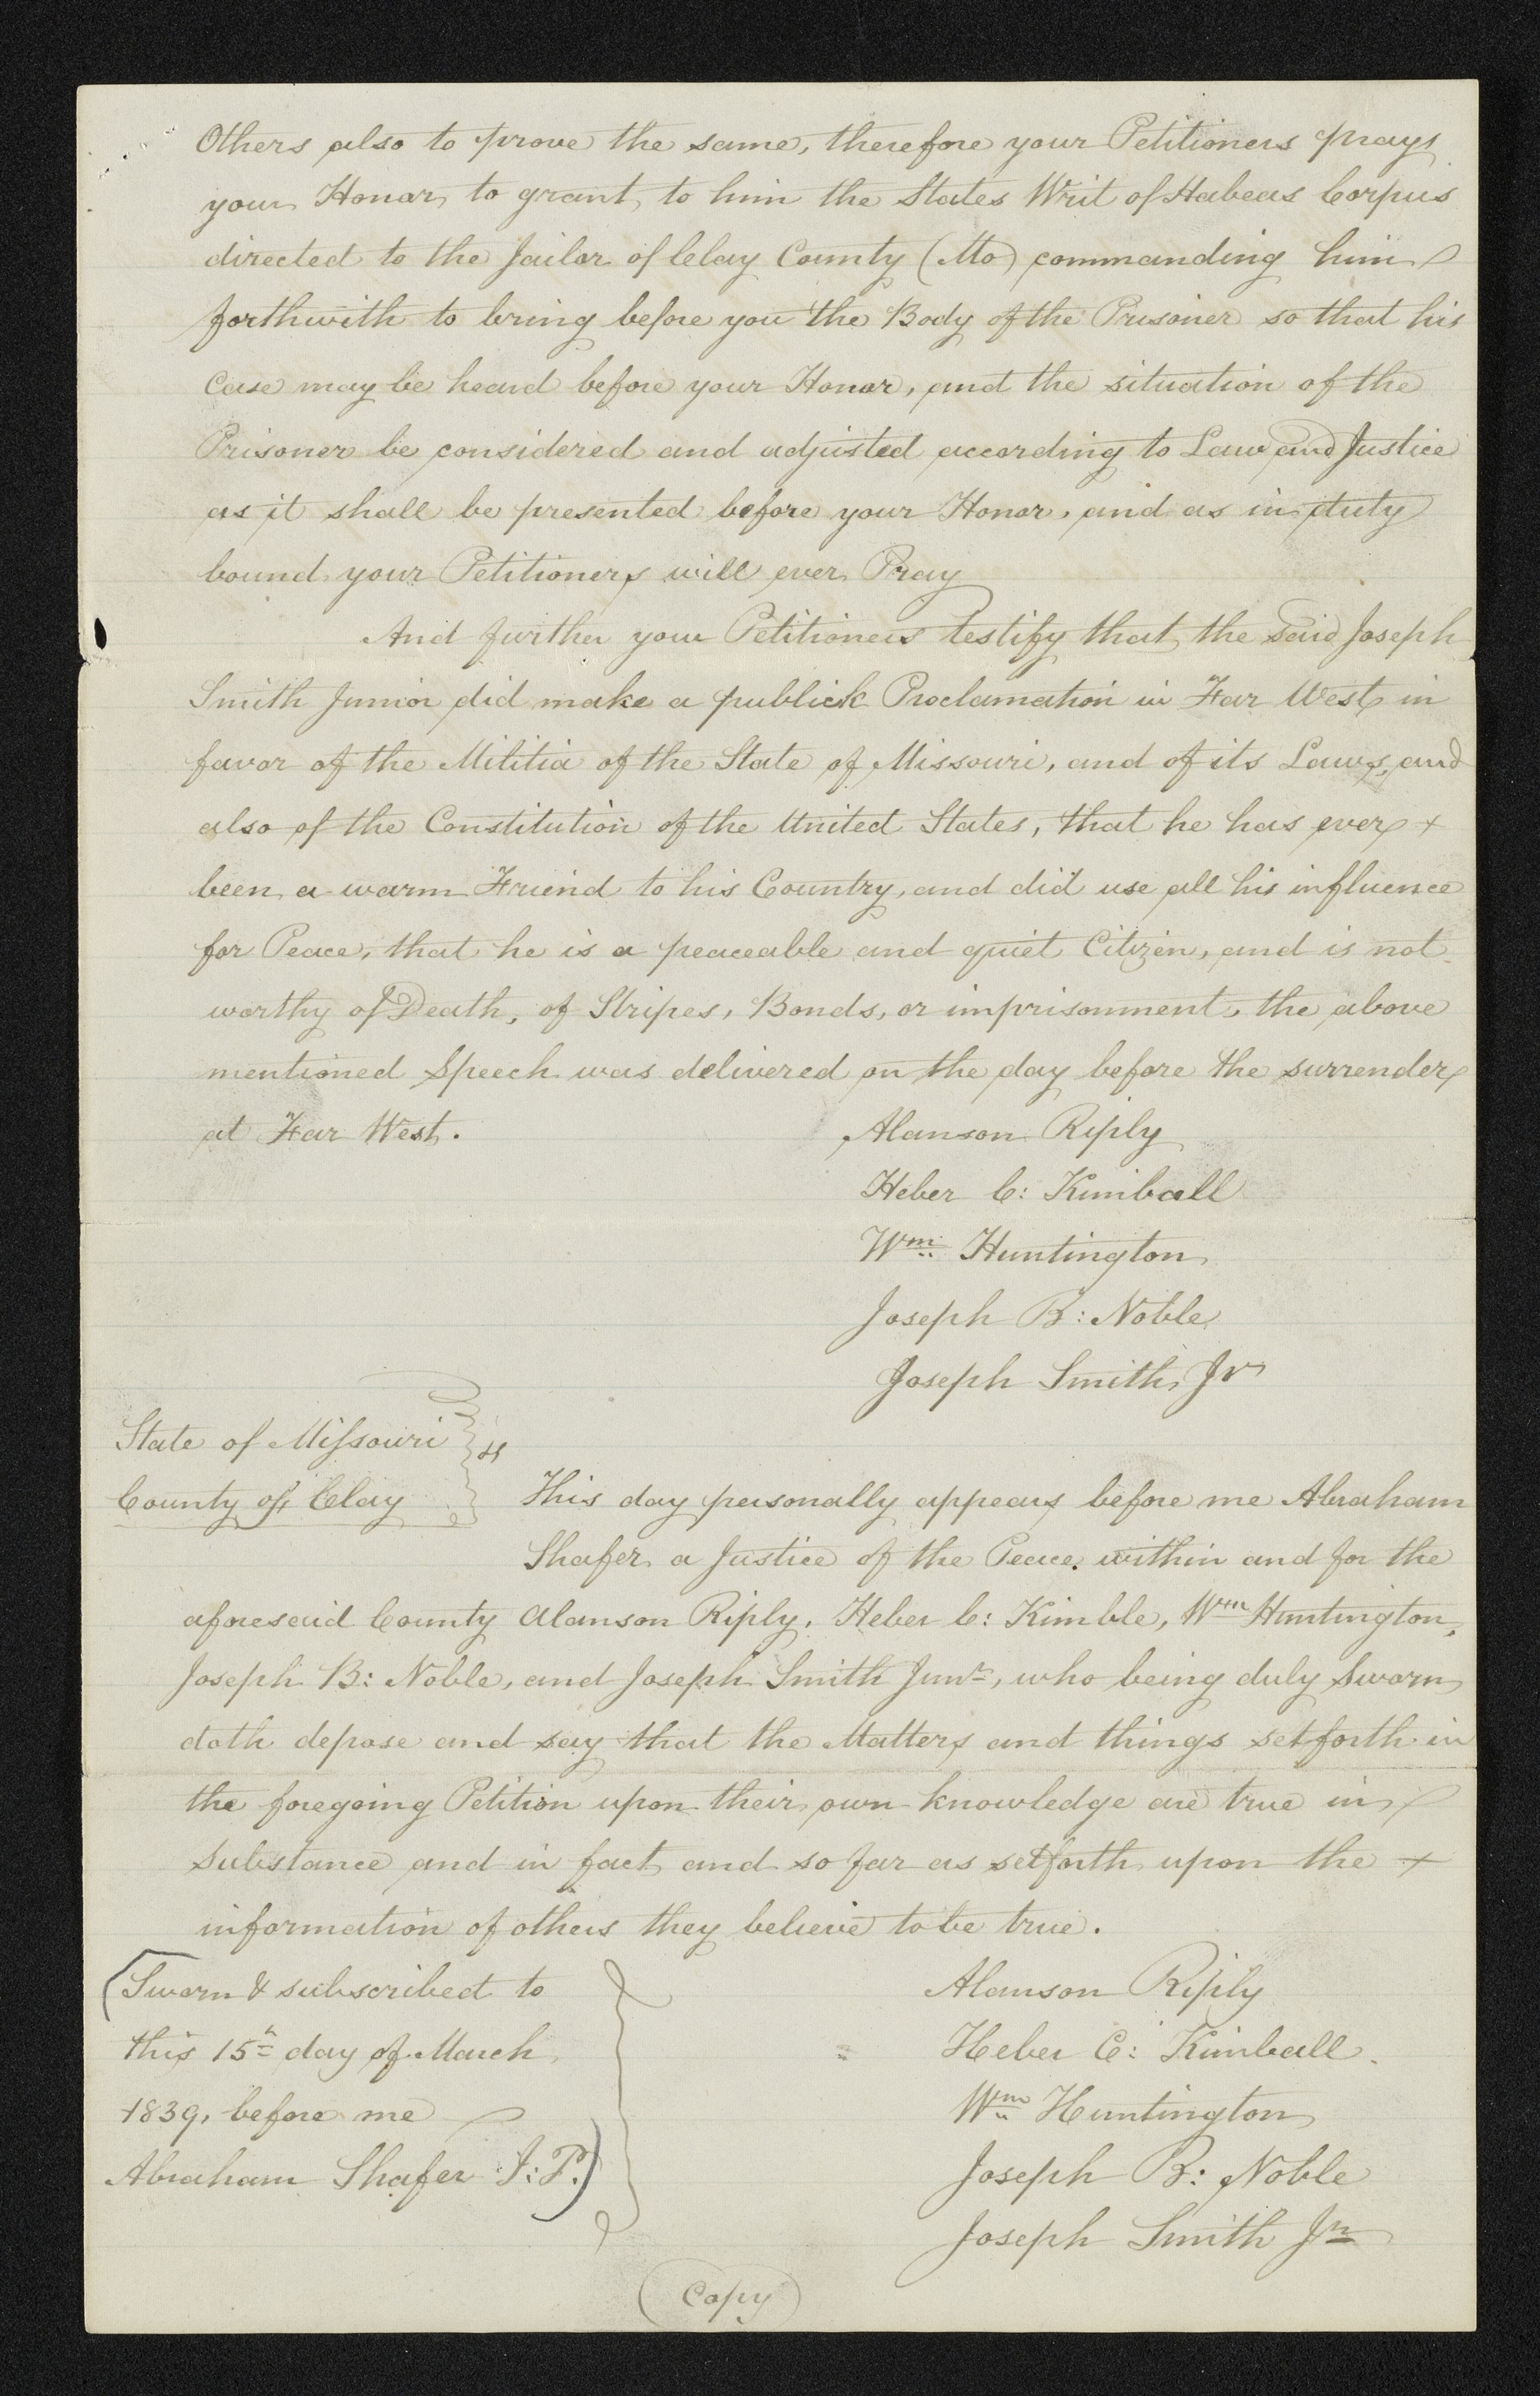 Others also to prove the same, therefore your Petitioners prays
your Honor, to grant to him the States Writ of Habeas Corpus
directed to the Jailor of Clay County (Mo) commanding him
forthwith to bring before you the Body of the Prisoner so that his
Case may be heard before your Honor, and the situation of the
Prisoner be considered and adjusted according to Law and Justice
as it shall be presented before your Honor, and as in duty
bound your Petitioners will ever Pray
And further your Petitioners testify that the said Joseph
Smith Junior did make a publick Proclamation in Far West in
favor of the Militia of the State of Missouri, and of its Laws, and
also of the Constitution of the United States, that he has ever +
been a warm Friend to his Country, and did use all his influence
for Peace, that he is a peaceable and quiet Citizen, and is not
worthy of Death, of Stripes, Bonds, or imprisonment, the above
mentioned Speech was delivered on the day before the surrender
at Far West.
Alanson Riply
Heber C: Kimball
Wm Huntington
Joseph B: Noble
Joseph Smith, Jr
State of Missouri } ss
County of Clay
This day personally appears before me Abraham
Shafer a Justice of the Peace. within and for the
aforesaid County Alanson Riply, Heber C: Kimble, Wm Huntington,
Joseph B: Noble, and Joseph Smith Junr, who being duly Sworn
doth depose and say that the Matters and things setforth in
the foregoing Petition upon their own knowledge are true in
substance and in fact and so far as setforth upon the +
information of others they believe to be true.
(Sworn & subscribed to
this 15th day of March
1839, before me
Abraham Shafer J: P.)
Alanson Riply
Heber C: Kimball.
Wm Huntington
Joseph B: Noble
Joseph Smith Jr
(Copy)